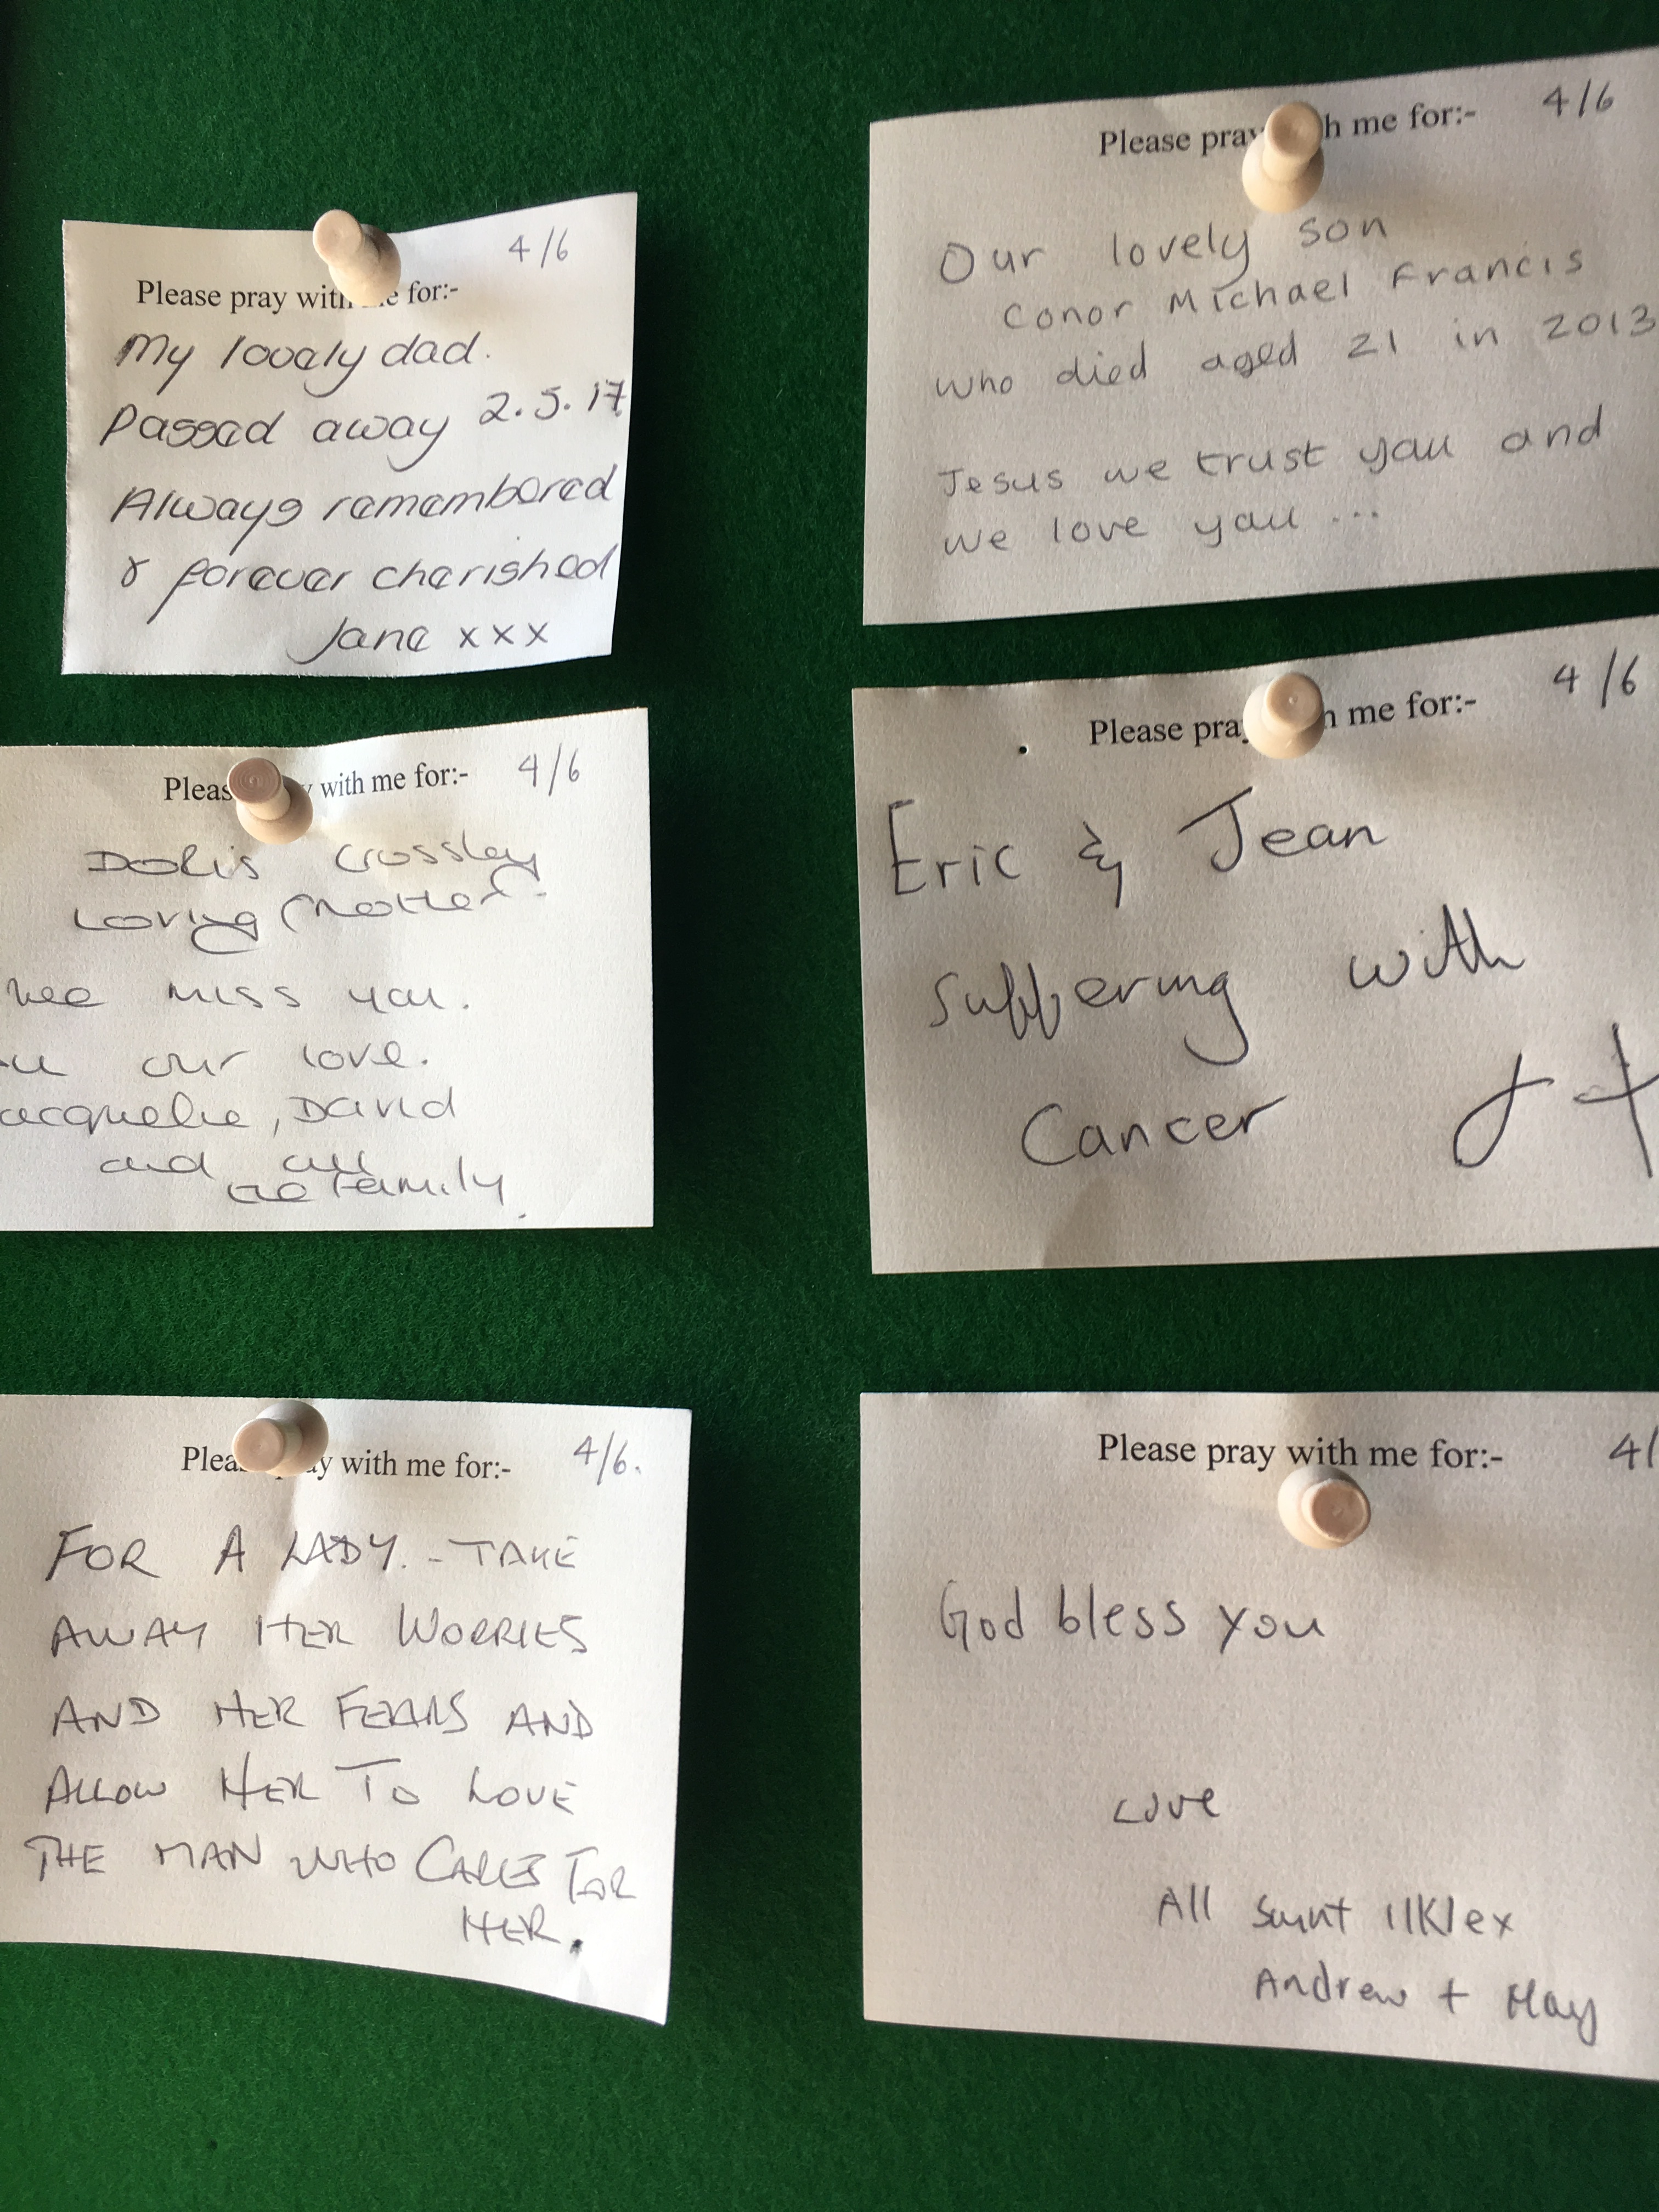 4/6
Please pray with me for:-
My lovely dad.
Passed away 2.5.17
Always remembered
& forever cherished
Jane xxx
4/6
Please pray with me for:-
Our lovely son
Conor Michael Francis
who died aged 21 in 2013
Jesus we trust you and
we love you ...
Please pray with me for:- 4/6
Doris Crossley
Loving Mother.
we miss you.
our love.
David
and all
the family.
4/6
Please pray with me for:-
Eric & Jean
suffering with
Cancer
Please pray with me for:- 4/6.
FOR A LADY. - TAKE
AWAY HER WORRIES
AND HER FEARS AND
ALLOW HER TO LOVE
THE MAN WHO CARES FOR
HER.
Please pray with me for:- 4/
God bless you
Love
All Saint
Andrew + May